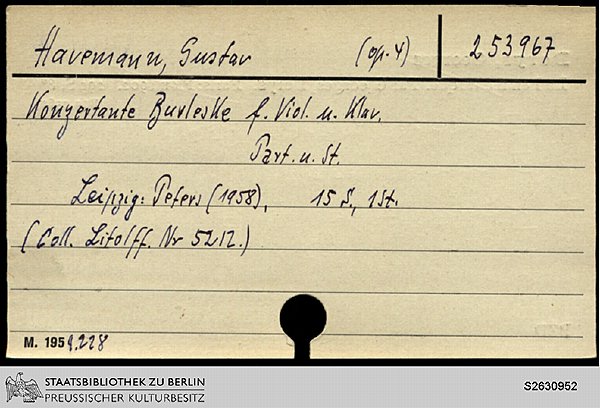 Havemann, Gustav (op. 4) 253967
Konzertante Burleske f. Viol. u. Klav.
Part. u. St.
Leipzig: Peters (1958), 15 S., 1 St.
(Coll. Litolff. Nr 5212.)
M. 1959.228
STAATSBIBLIOTHEK ZU BERLIN
PREUSSISCHER KULTURBESITZ
S2630952